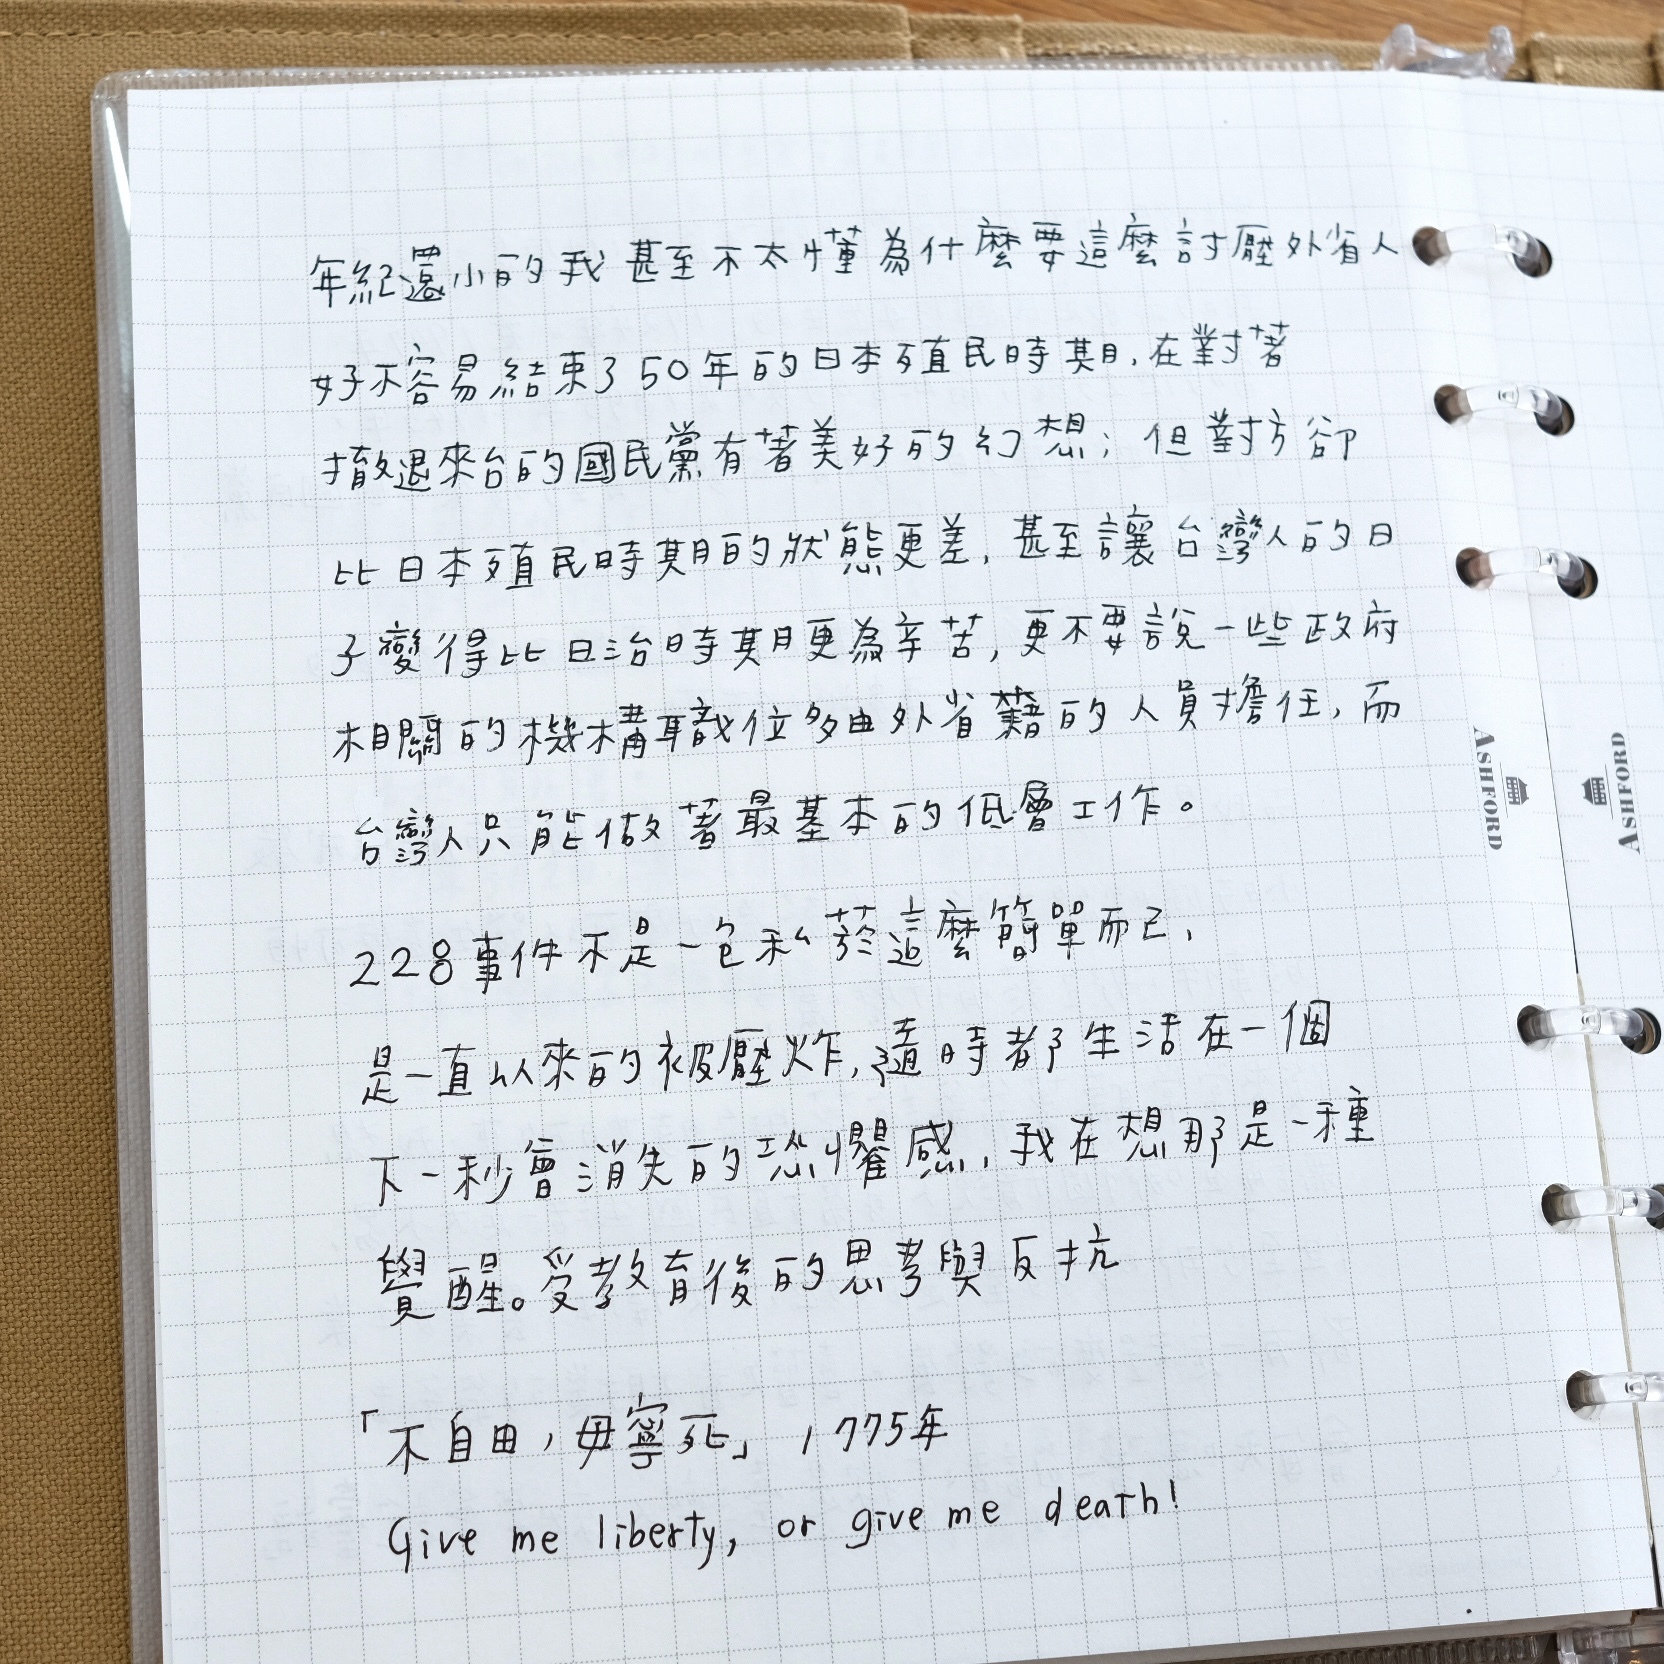 年紀還小的我甚至不太懂為什麼要這麼討壓外省人
好不容易結束了50年的日本殖民時期,在對著
撤退來台的國民黨有著美好的幻想;但對方卻
比日本殖民時期的狀態更差,甚至讓台灣人的日
子變得比日治時期更為辛苦,更不要說一些政府
相關的機構職位多由外省籍的人員擔任,而
台灣人只能做著最基本的低層工作。
228事件不是一包私菸這麼簡單而已,
是一直以來的被壓炸,隨時都生活在一個
下一秒會消失的恐懼感,我在想那是一種
覺醒。受教育後的思考與反抗
「不自由,毋寧死」1775年
Give me liberty, or give me death!
ASHFORD
ASHFORD